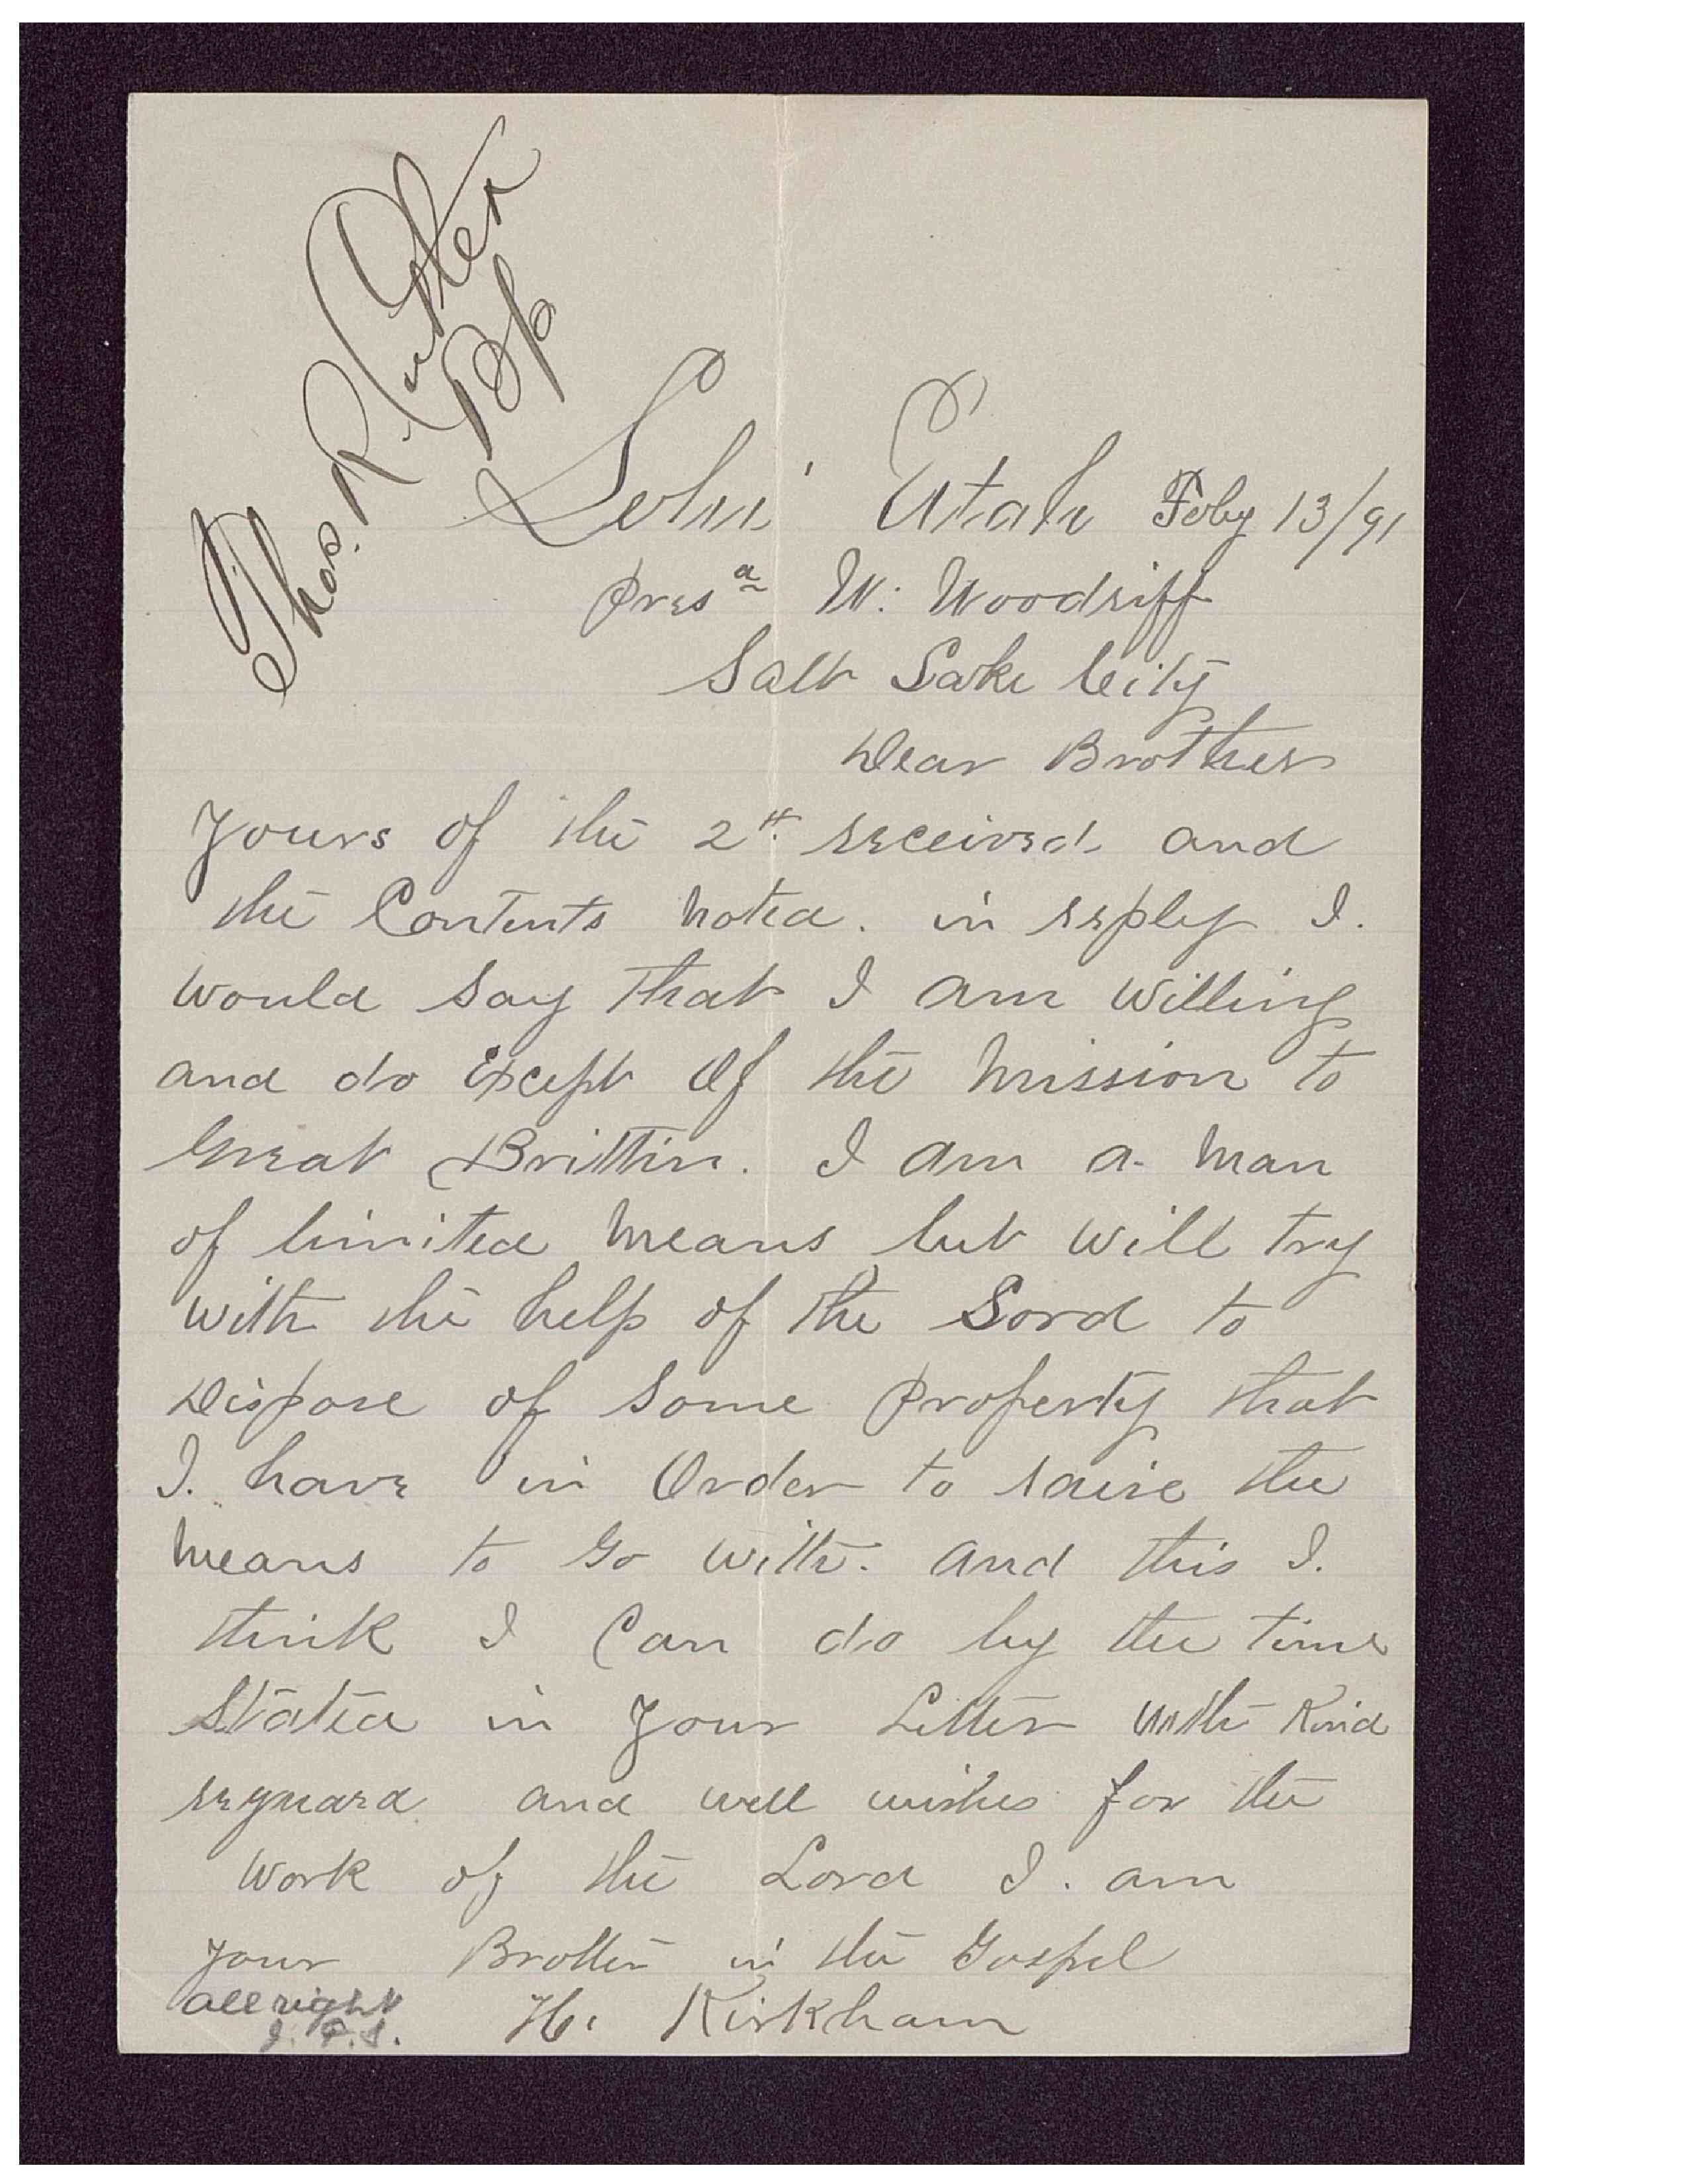 Thos. R. Cutler
Bp
Lehi Utah Feby 13/91
Pres W. Woodriff
Salt Lake City
Dear Brother
Yours of the 2nd received and
the Contents noted. in reply I.
would say that I am willing
and do Except of the mission to
Great Brittin. I am a man
of limited means but will try
with the help of the Lord to
Dispose of some property that
I. have in Order to raise the
means to go with. and this I.
think I Can do by the time
Stated in your Letter with Kind
reguard and well wishes for the
work of the Lord I. am
your Brother in the Gospel
H. Kirkham
all right
J. F. S.